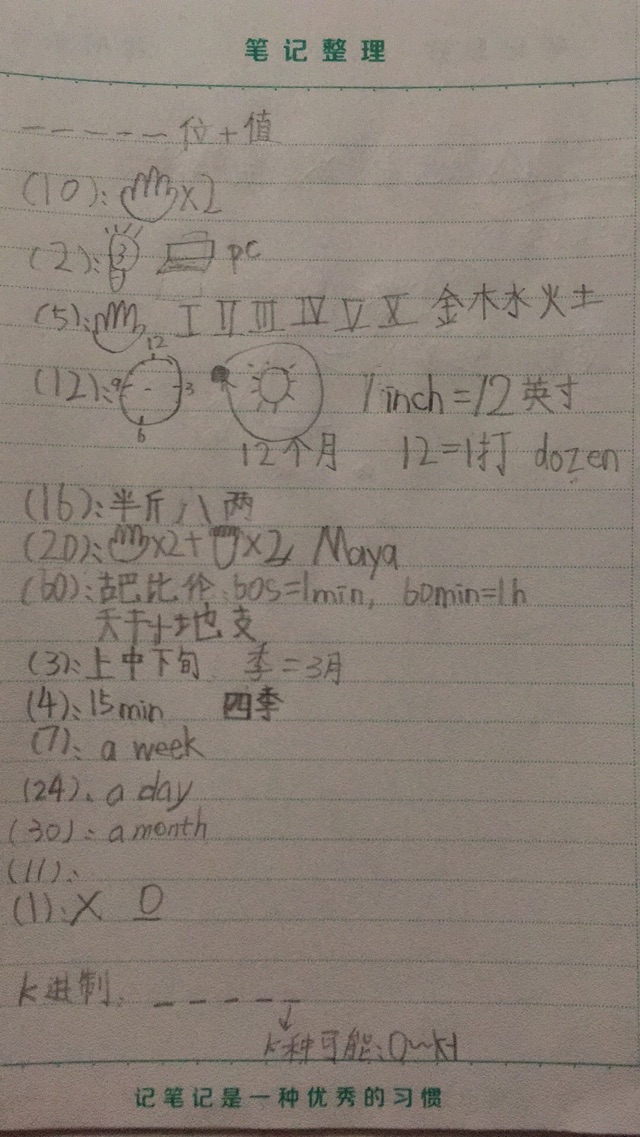 笔记整理
_ _ _ _ _ 位+值
(10): ×2
(2): pc
(5): I II III IV V X 金木水火土
(12): 12 3 6 9 1 inch=12英寸
12个月 12=1打 dozen
(16):半斤八两
(20): ×2+ ×2 Maya
(60):古巴比伦:60s=1min, 60min=1h
天干+地支
(3):上中下旬 季=3月
(4):15min 四季
(7): a week
(24): a day
(30): a month
(11):
(1):X 0
k进制: _ _ _ _ _
k种可能:0~k-1
记笔记是一种优秀的习惯